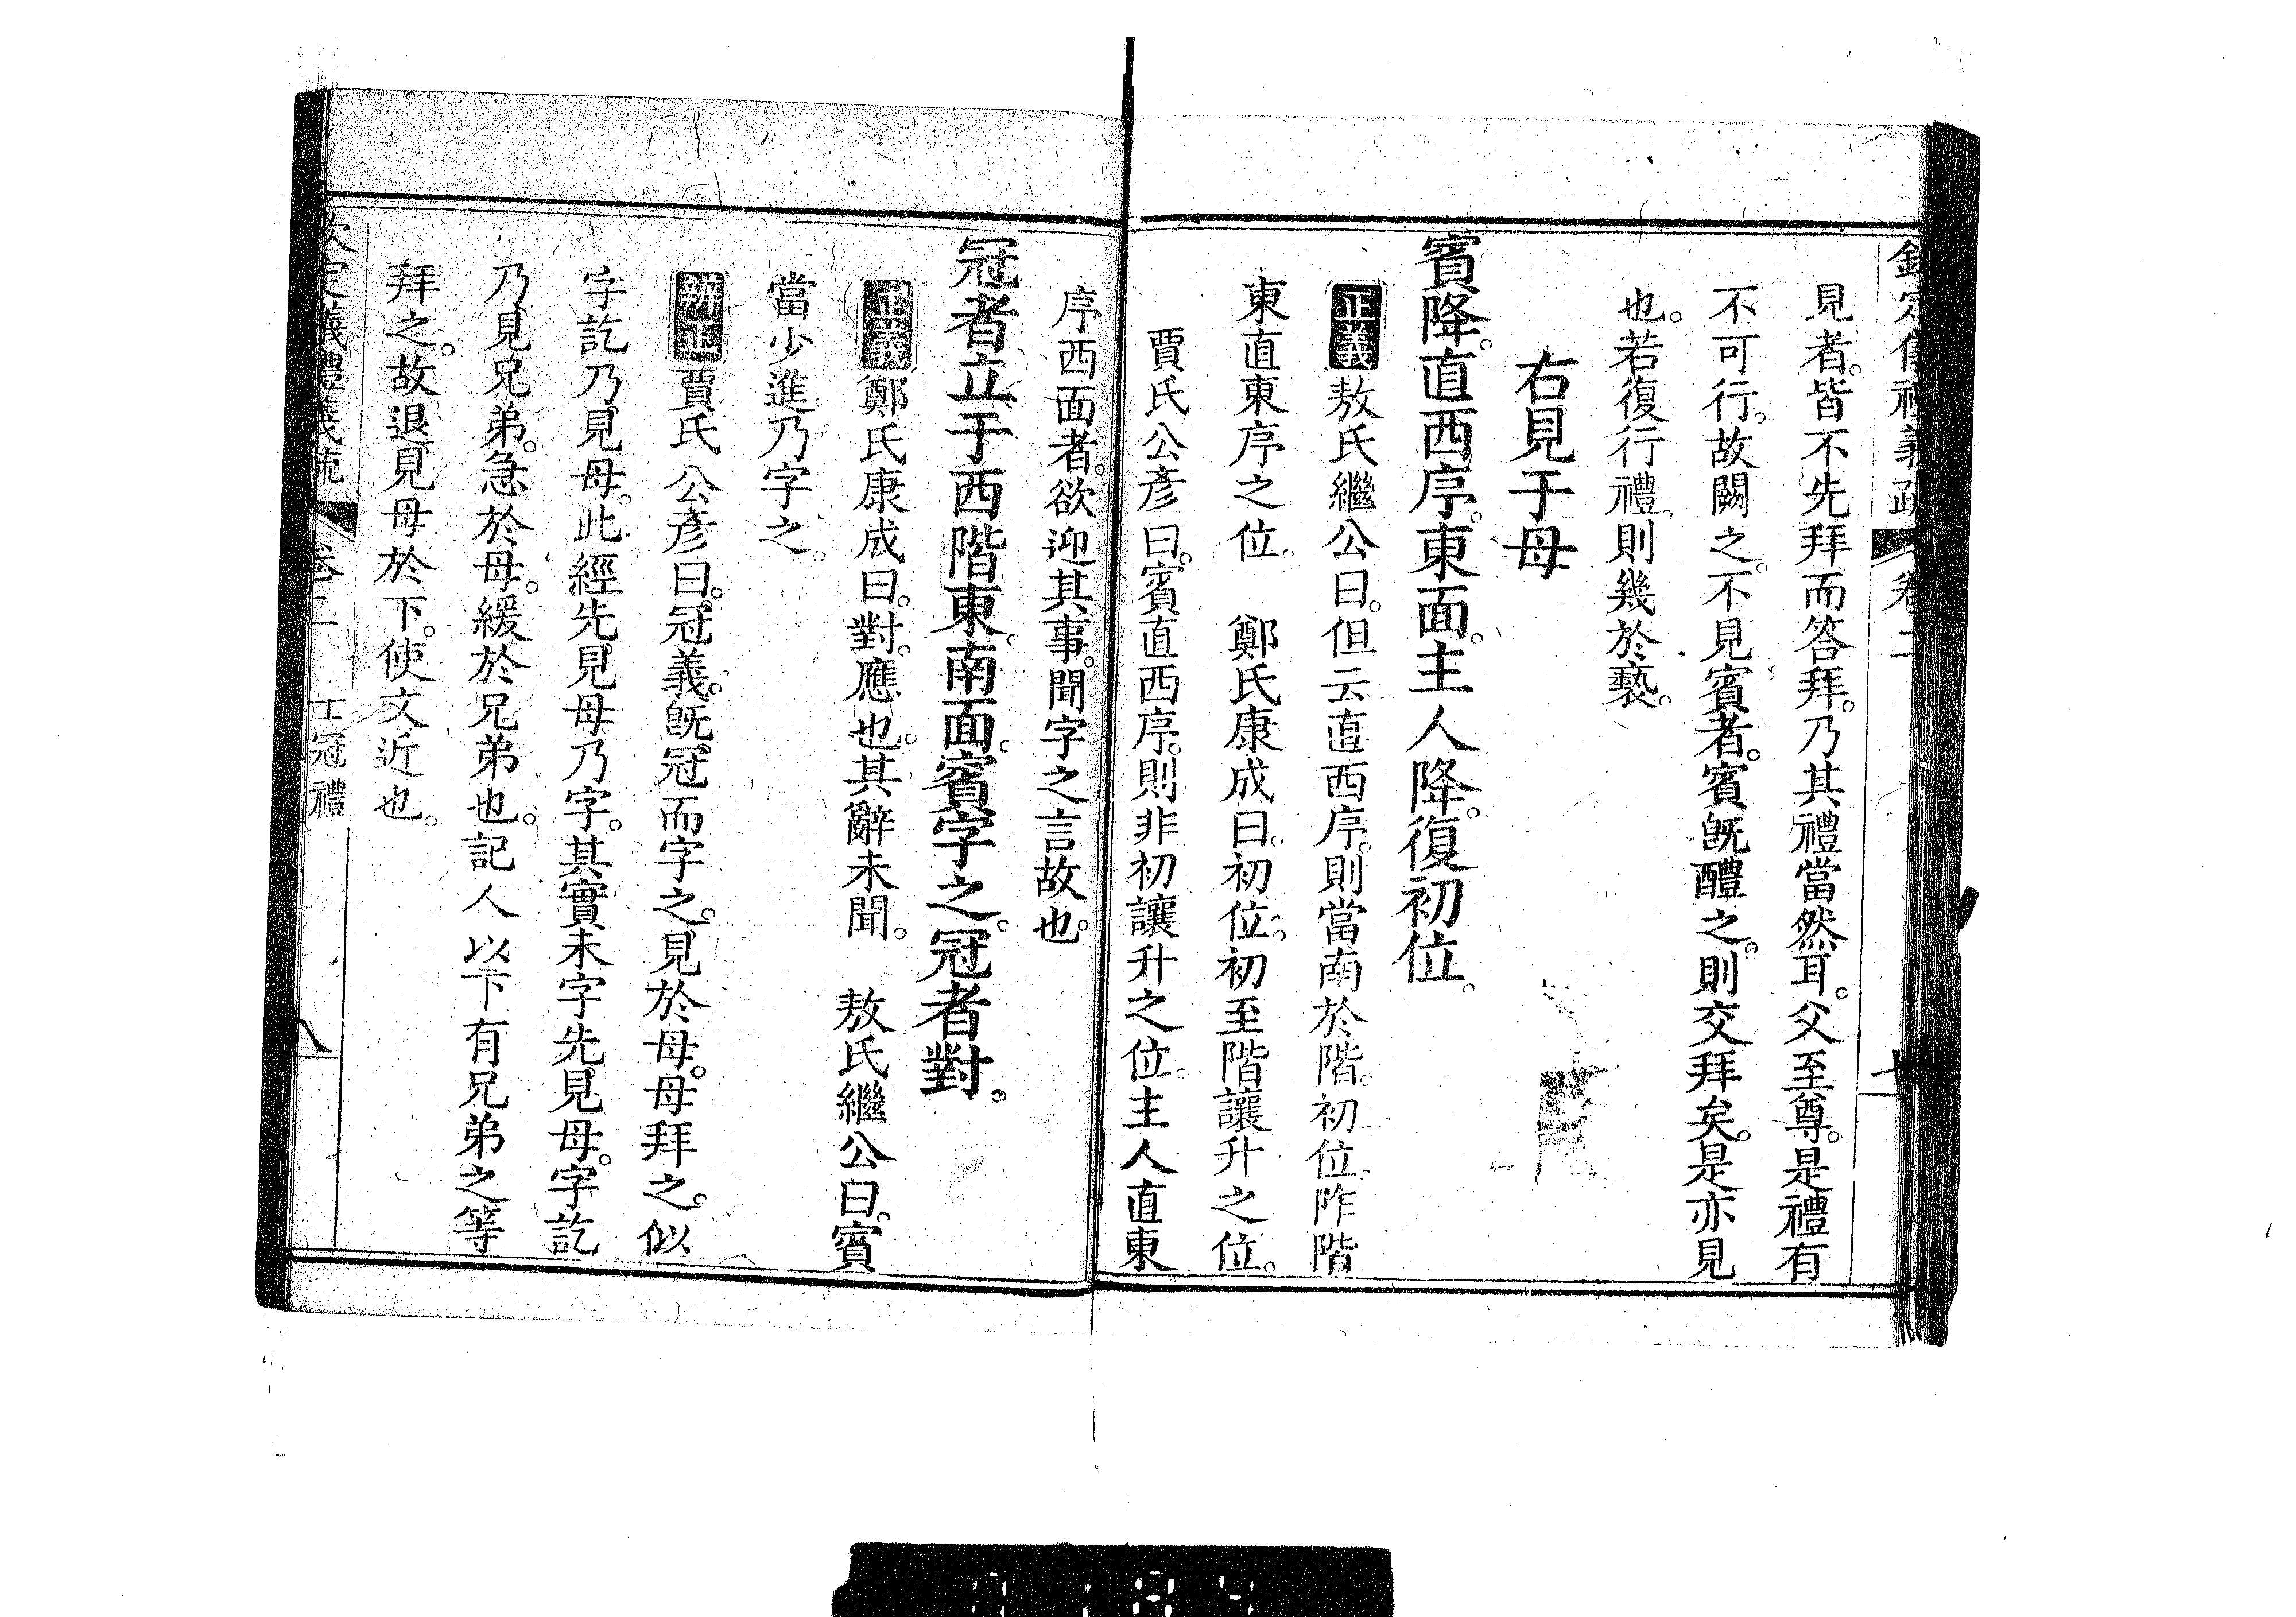 欽定儀禮義疏 卷二 七
見者。皆不先拜而答拜。乃其禮當然耳。父至尊。是禮有
不可行。故闕之。不見賓者。賓旣醴之。則交拜矣。是亦見
也。若復行禮則幾於褻。
右見于母
賓降。直西序。東面。主人降。復初位。
正義敖氏繼公曰。但云直西序。則當南於階。初位。阼階
東直東序之位。 鄭氏康成曰。初位。初至階讓升之位。
賈氏公彥曰。賓直西序。則非初讓升之位。主人直東
序西面者。欲迎其事。聞字之言故也。
冠者立于西階東。南面。賓字之。冠者對。
正義鄭氏康成曰。對。應也。其辭未聞。 敖氏繼公曰。賓
當少進乃字之。
辨正賈氏公彥曰。冠義。旣冠而字之。見於母。母拜之。似
字訖乃見母。此經先見母乃字。其實未字先見母。字訖
乃見兄弟。急於母。緩於兄弟也。記人以下有兄弟之等
拜之。故退見母於下。使文近也。
欽定儀禮義疏 卷二 士冠禮 八